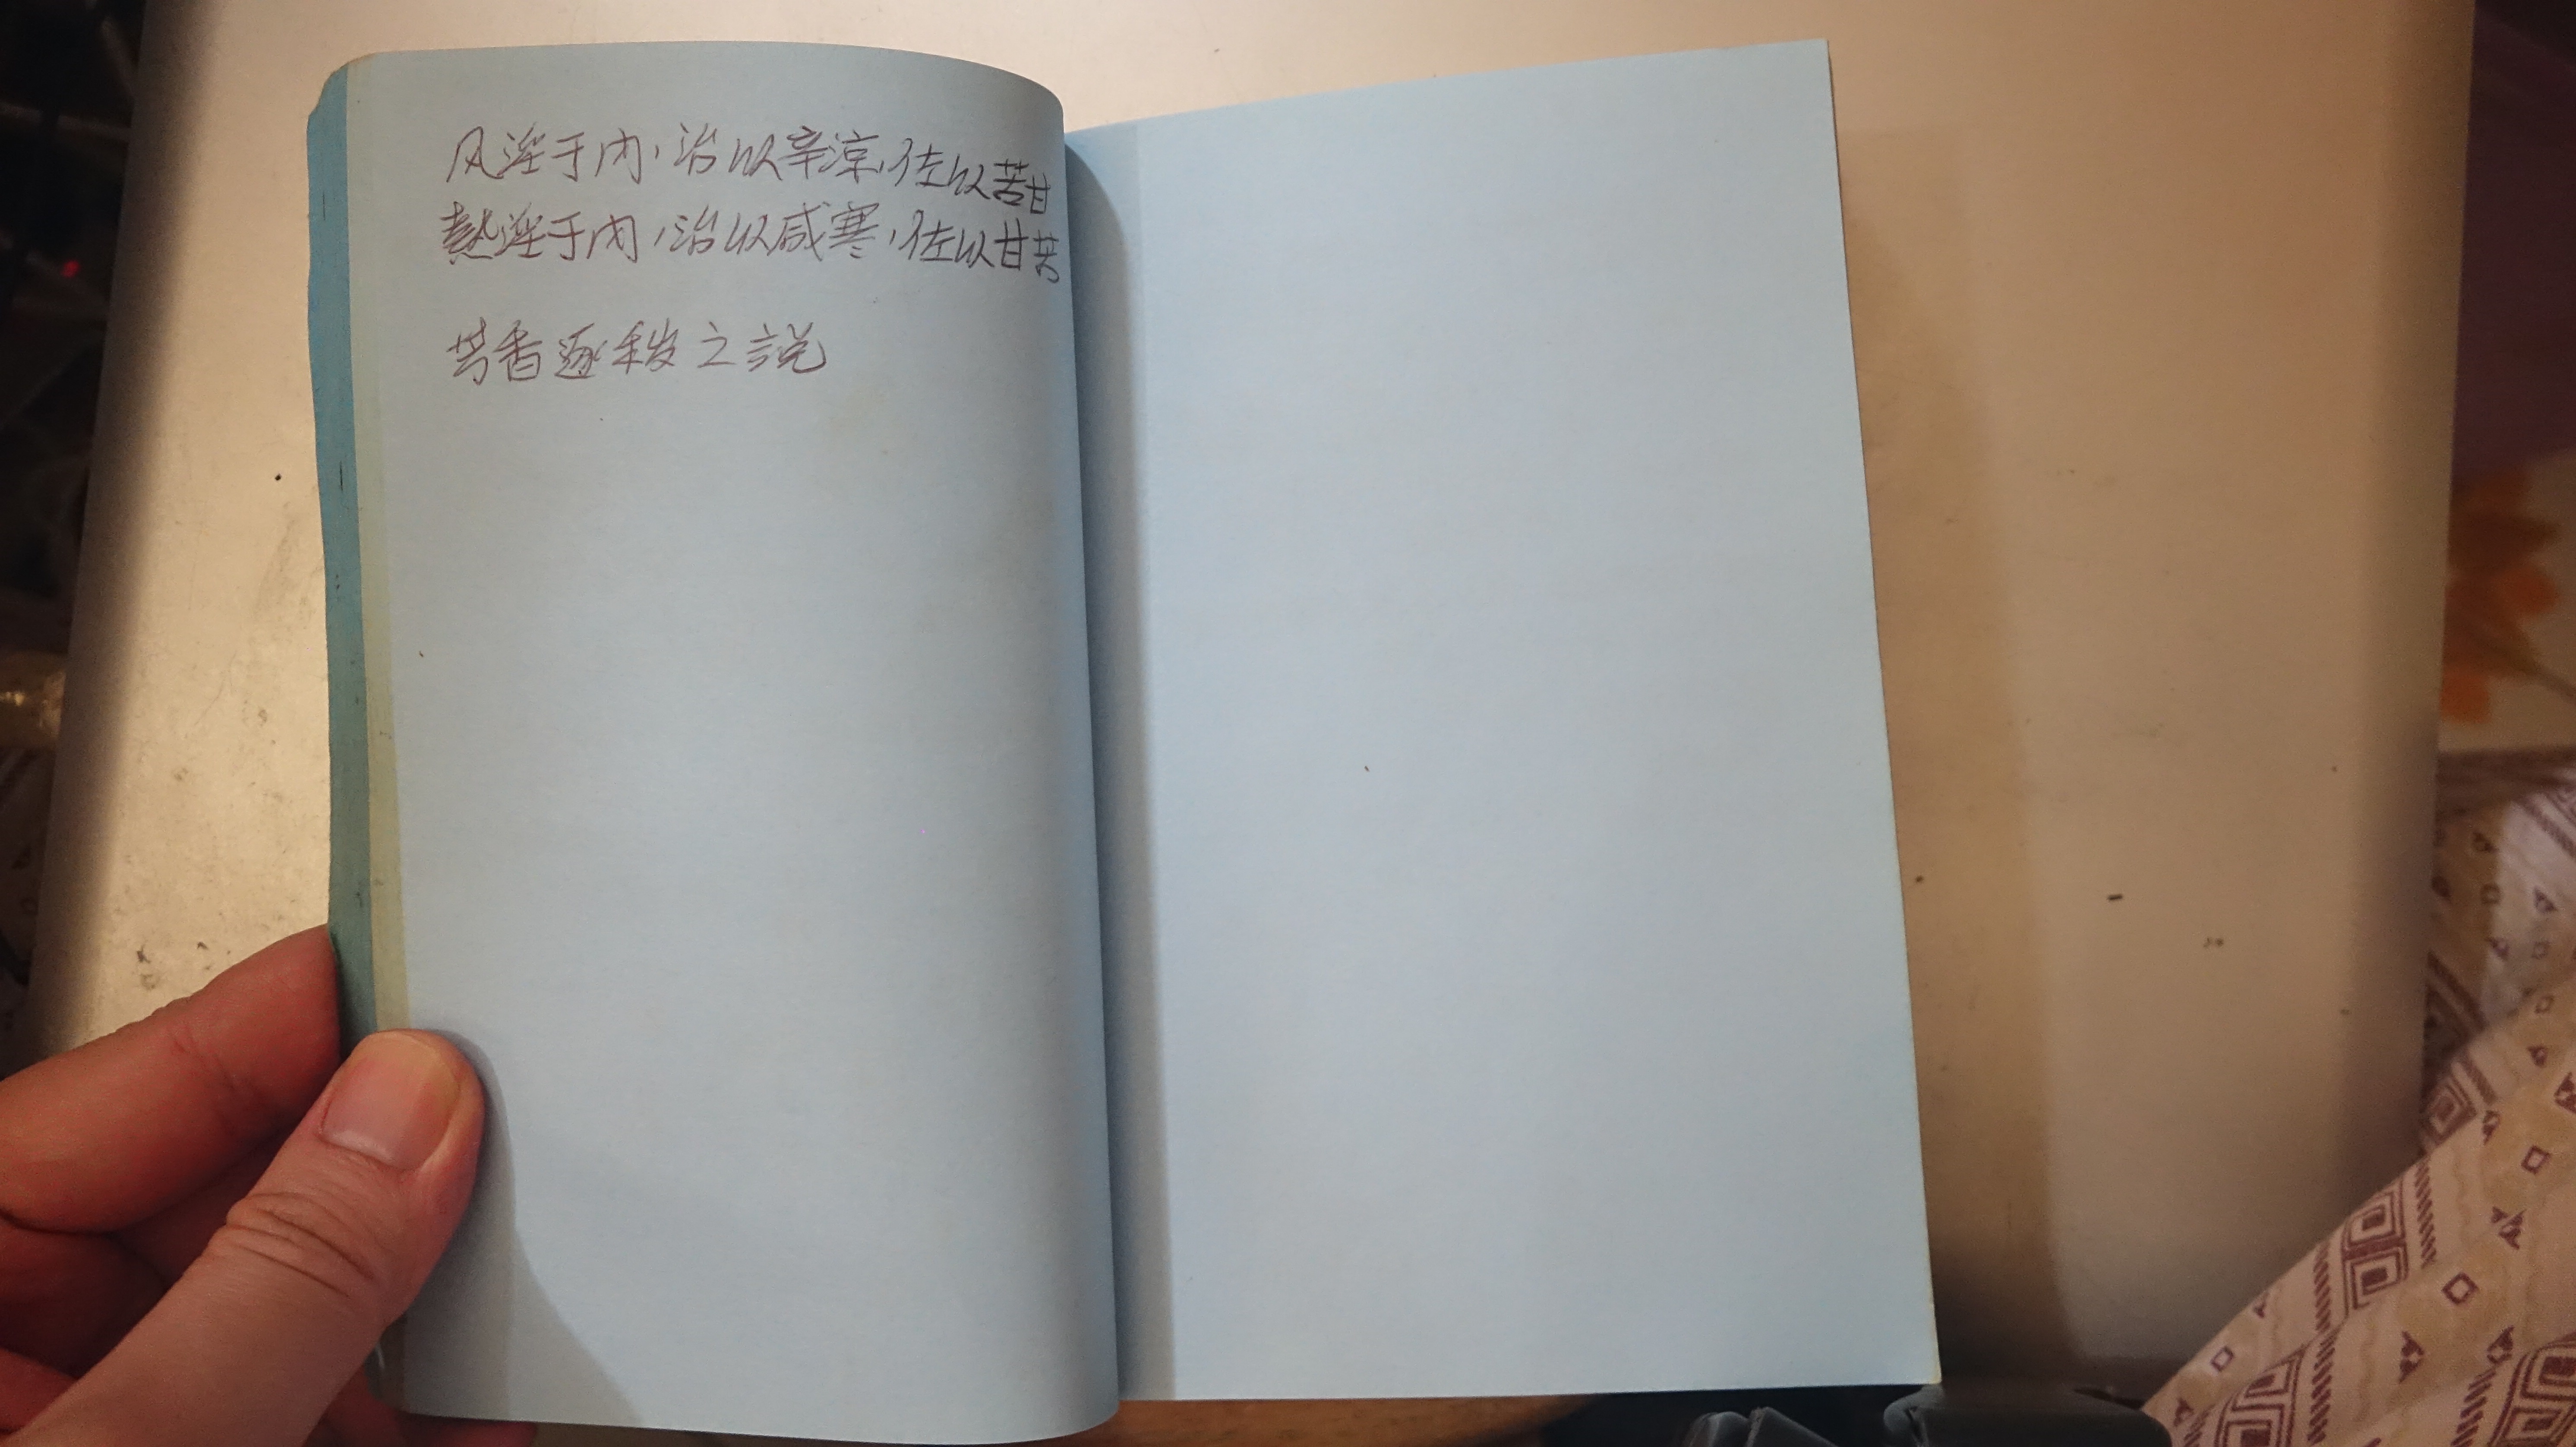 风淫于内，治以辛凉，佐以苦甘
熱淫于内，治以咸寒，佐以甘苦
芳香逐秽之説